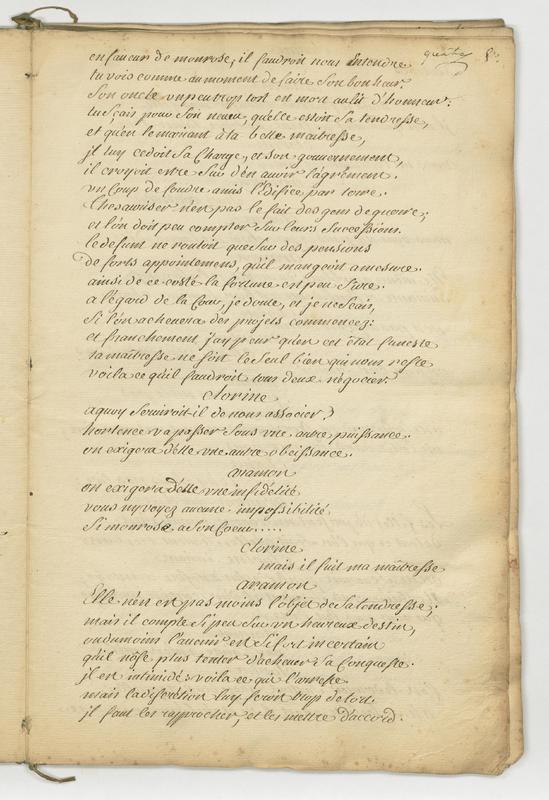 quatre 5e.
en faueur de monrose; il faudroit nous entendre
tu vois comme au moment de faire son bonheur.
Son oncle vn peu trop tost est mort au lit d'honneur.
tu sçais pour son neueu, quelle estoit sa tendresse,
et qu'en le mariant à ta belle maitresse,
jl luy cedoit sa Charge, et son gouuernement,
il croyoit estre sur d'en auoir l'agrément.
vn Coup de foudre a mis l'édifice par terre.
Thesauriser n'est pas le fait des gens de guerre;
et l'on doit peu compter sur leurs successions.
le defunt ne rouloit que sur des pensions
De forts appointemens, qu'il mangeoit a mesure.
ainsi de ce costé la fortune est peu sure.
a l'égard de la Cour, je doute, et je ne sçais,
si l'on acheuera des projets commencez:
et franchement j'ay peur qu'en cet état funeste
ta maitresse ne soit le seul bien qui nous reste
voila ce qu'il faudroit tous deux négocier.
clorine
a quoy seruiroit-il de nous associer?
hortence va passer sous vne autre puissance.
on exigera d'elle vne autre obeissance.
aramon
on exigera d'elle vne infidélité
vous n'y voyez aucune impossibilité
si monrose a son Coeur.....
clorine
mais il fuit ma maîtresse
aramon
Elle n'en est pas moins l'objet de sa tendresse;
mais il compte si peu sur vn heureux destin,
ou du moins l'auenir est si fort incertain
qu'il n'ose plus tenter d'acheuer sa Conqueste.
jl en intimidé: voila ce qui l'arreste
mais la discrétion luy feroit trop de tort.
jl faut les rapprocher, et les mettre d'accord.